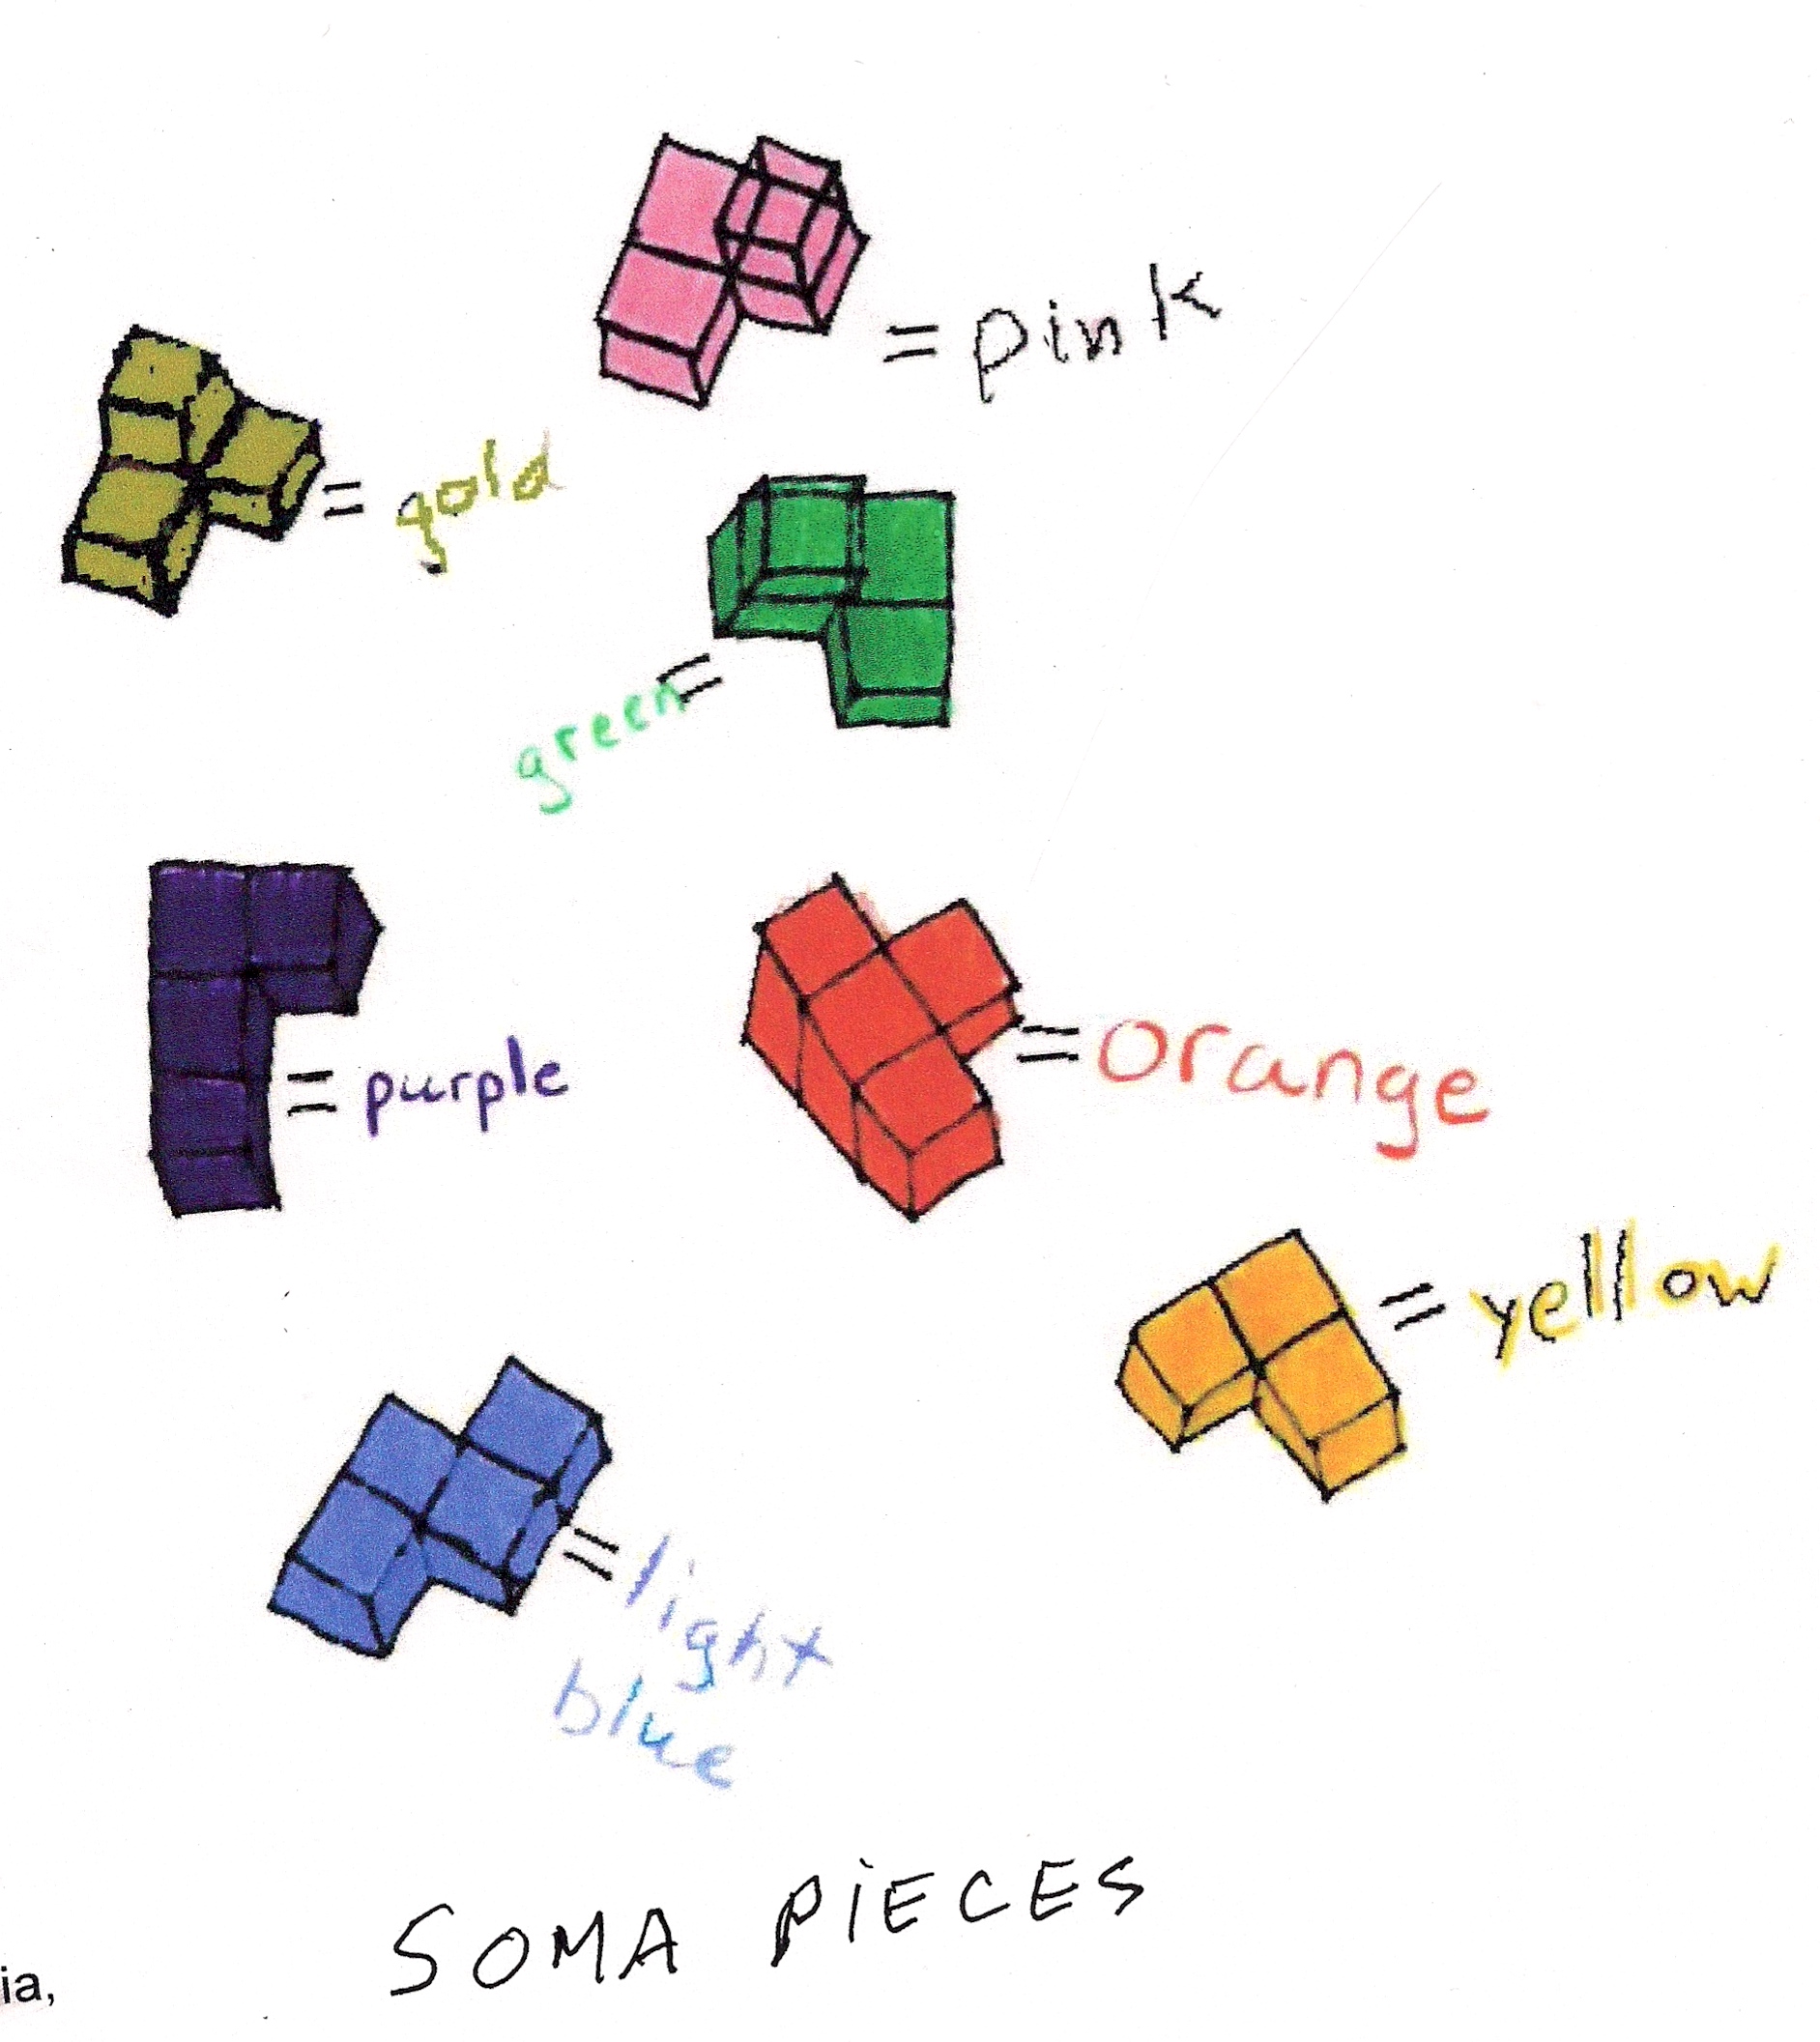 = pink
= gold
green =
= purple
= orange
= yellow
= light
blue
SOMA PIECES
ia,